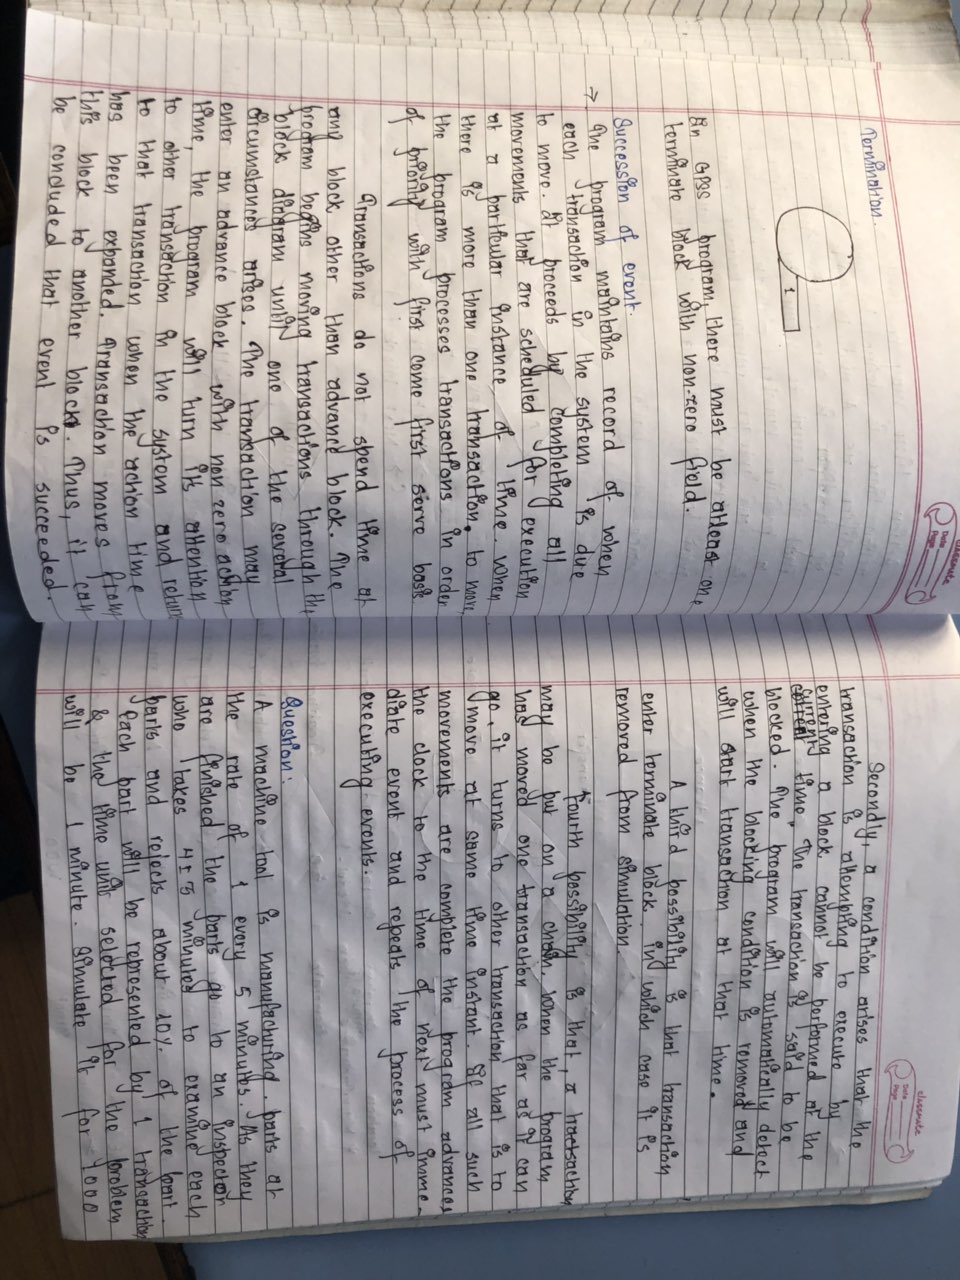 classmate
Date
Page
Termination.
1
In GPSS program, there must be atleast one
terminate block with non-zero field.
Succession of event.
→ The program maintains record of when
each transaction in the system is due
to move. It proceeds by completing all
movements that are scheduled for execution
at a particular instance of time. When
there is more than one transaction, to move
the program processes transactions in order
of priority with first come first serve basis.
Transactions do not spend time at
any block other than advance block. The
program begins moving transactions through the
block diagram until one of the several
circumstances arises. The transaction may
enter an advance block with non zero action
time, the program will turn its attention
to other transaction in the system and return
to that transaction when the action time
has been expanded. Transaction moves from
this block to another block. Thus, it can
be concluded that event is succeeded.
classmate
Date
Page
Secondly, a condition arises that the
transaction is attempting to execute by
entering a block cannot be performed at the
current time. The transaction is said to be
blocked. The program will automatically detect
when the blocking condition is removed and
will start transaction at that time.
A third possibility is that transaction
enter terminate block in which case it is
removed from simulation.
Fourth possibility is that, a transaction
may be put on a chain. When the program
had moved one transaction as far as it can
go, it turns to other transaction that is to
move at same time instant. If all such
movements are complete the program advances
the clock to the time of next must imme-
diate event and repeats the process of
executing events.
Question:
A machine tool is manufacturing parts at
the rate of 1 every 5 minutes. As they
are finished the parts go to an inspector
who takes 4±3 minutes to examine each
parts and rejects about 10% of the part.
Each part will be represented by 1 transaction
& the time unit selected for the problem
will be 1 minute. Simulate it for 1000